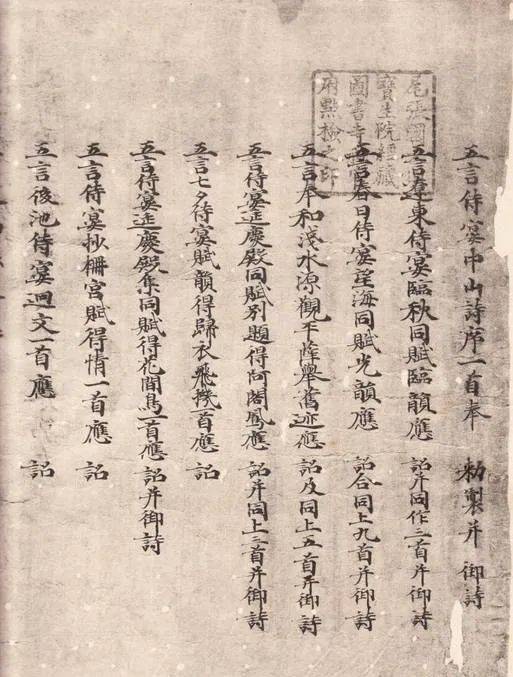 五言侍宴中山詩序一首奉 勑製并 御詩
五言遼東侍宴臨秋同賦臨韻應 詔并同作三首并御詩
五言春日侍宴望海同賦光韻應 詔合同上九首并御詩
五言奉和淺水源觀平薛舉舊迹應 詔及同上五首并御詩
五言侍宴延慶殿同賦別題得阿閣鳳應 詔并同上三首并御詩
五言七夕侍宴賦韻得歸衣飛機一首應 詔
五言侍宴延慶殿集同賦得花間鳥一首應 詔并御詩
五言侍宴抄柵宮賦得情一首應 詔
五言後池侍宴迴文一首應 詔
尾張國
寶生院經藏
圖書寺社官
府點檢之印